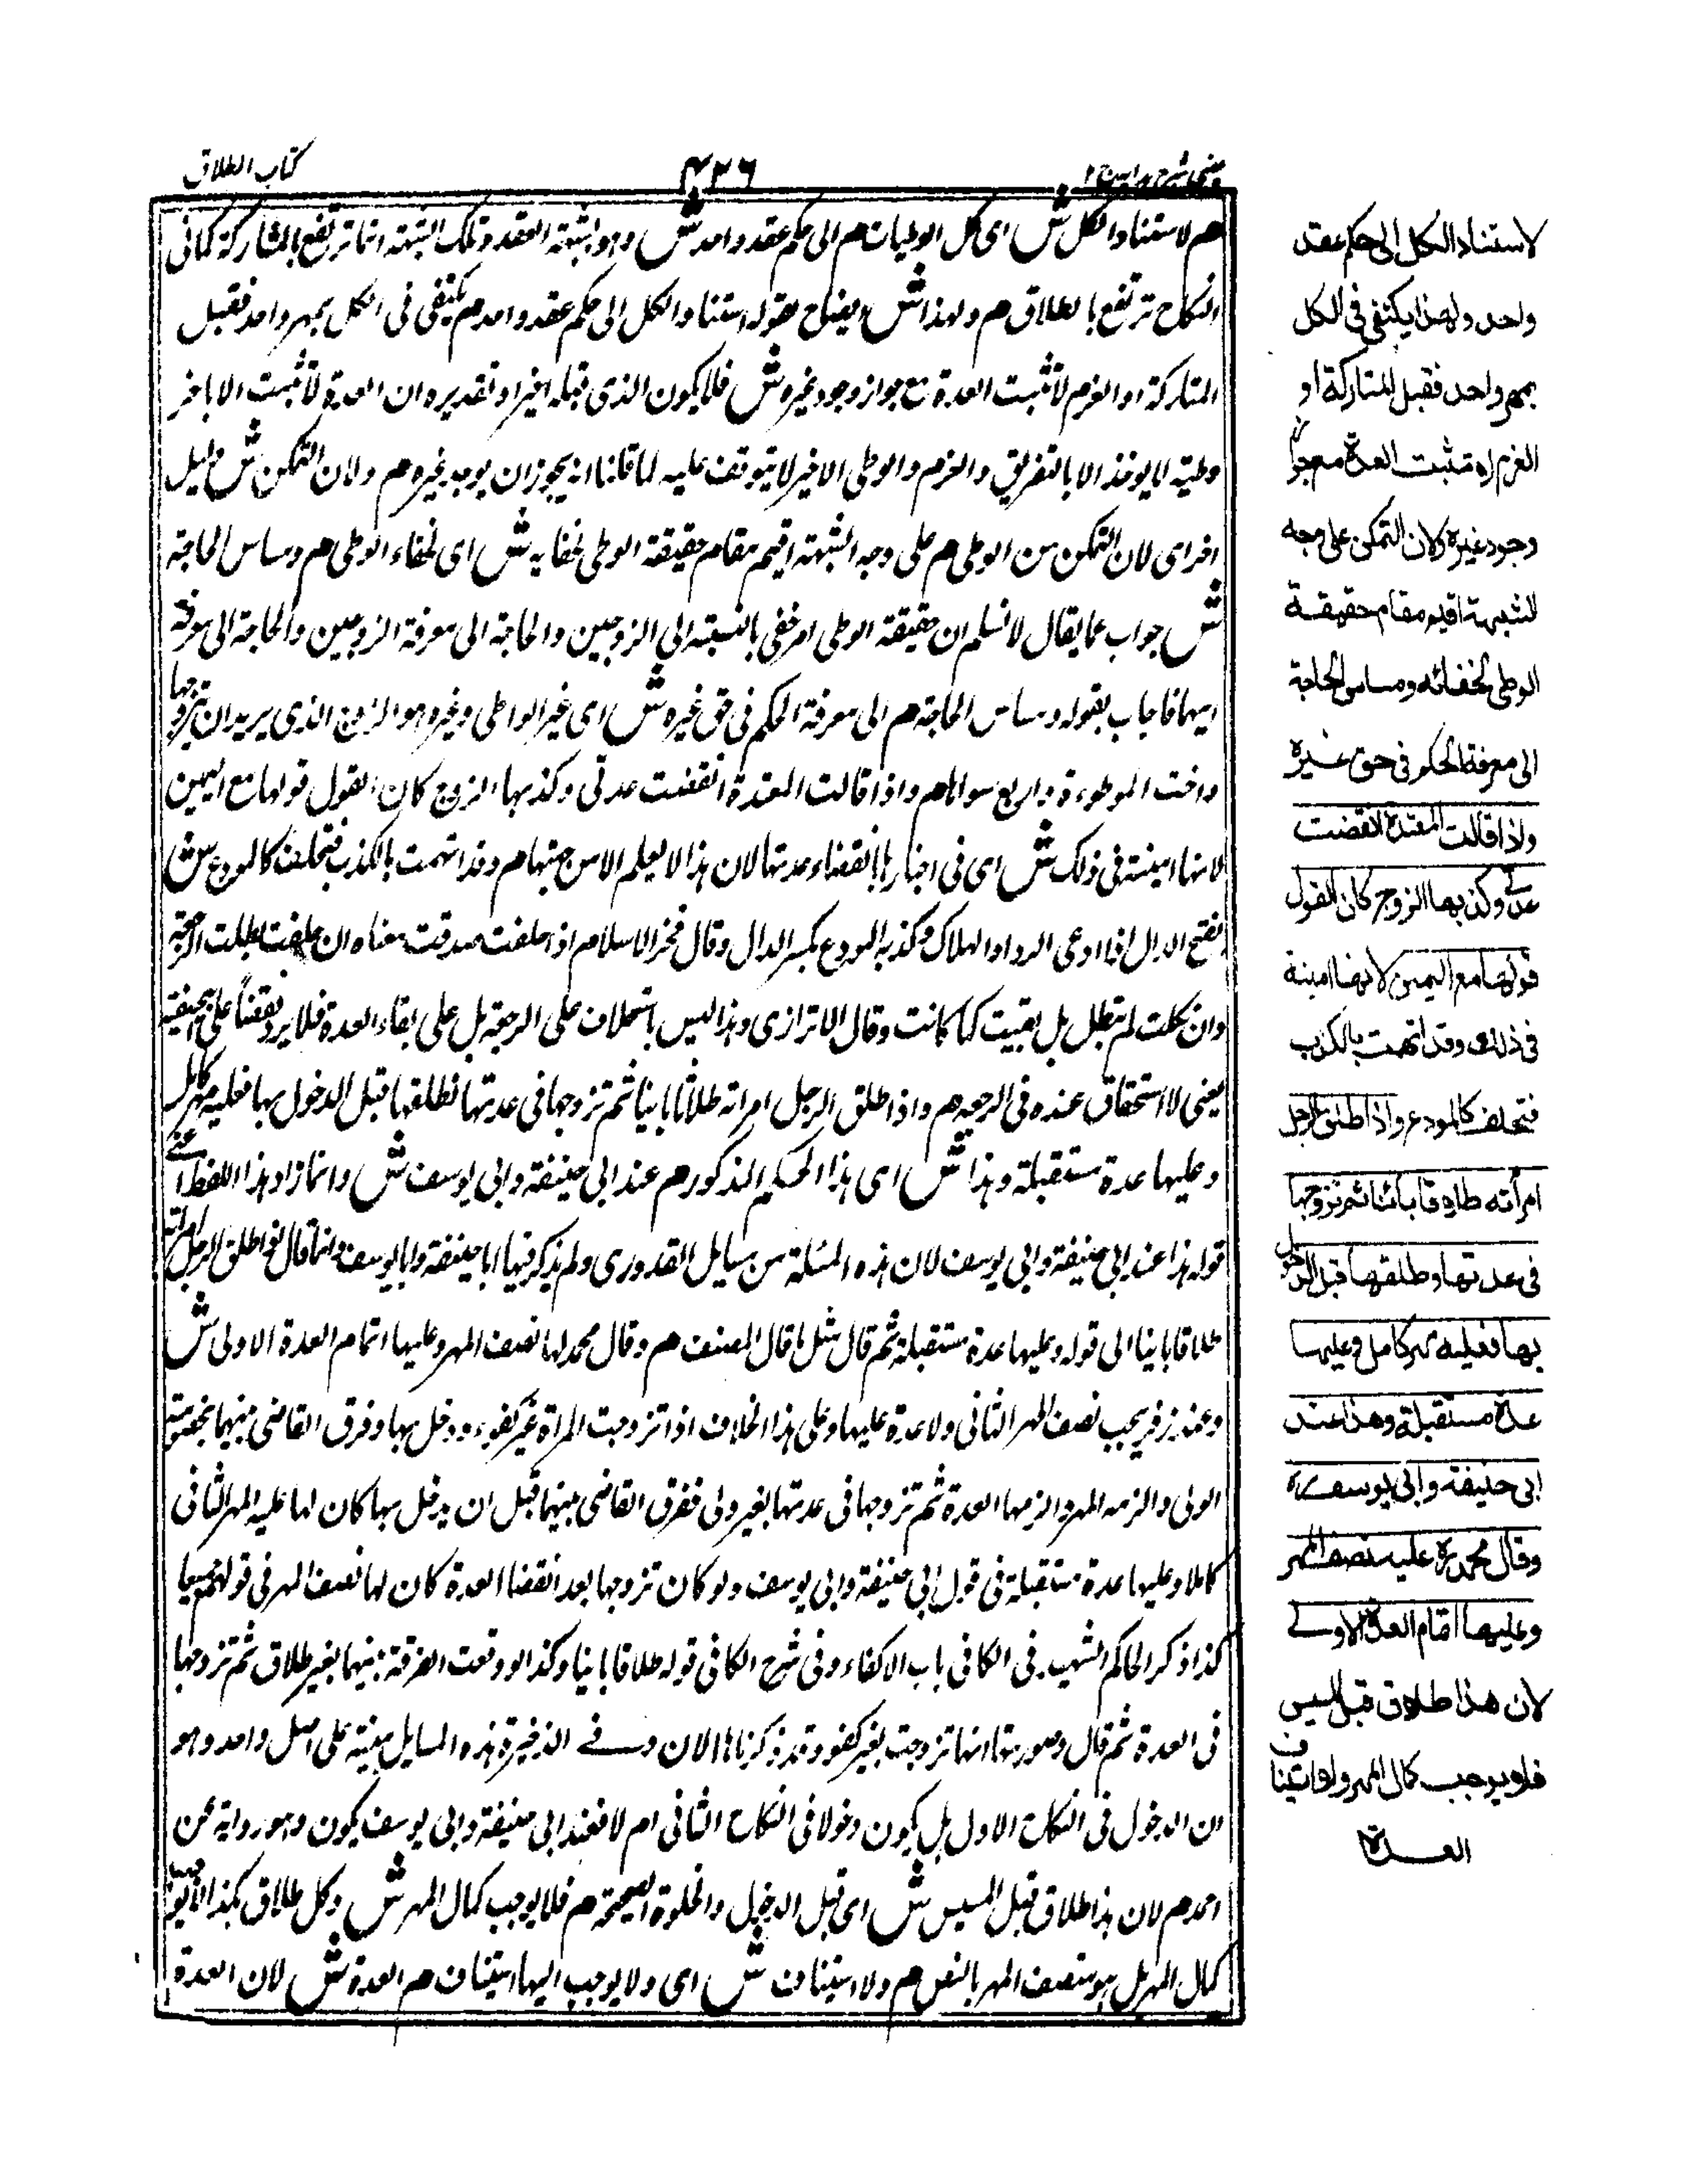 كتاب الطلاق
٤٢٦
عيني شرح هداية ج ٢
هم لاستناد الكل ش اى كل الوطيات هم الى حكم عقد واحد ش وهو شبهة العقد وتلك الشبهة انما ترتفع بالمتاركة كما فى
النكاح ترتفع بالطلاق هم ولهذا ش ايضاح بقوله استناد الكل الى حكم عقد واحد هم يكتفى فى الكل بمهر واحد فقبل
المتاركة او العزم لا تثبت العدة مع جواز وجود غيره ش فلا يكون الذى قبله اخيرا وتقديره ان العدة لا تثبت الا باخر
وطئية لا يوخذ الا بالتفريق والعزم والوطى الاخير لا يتوقف عليه لما قلنا انه يجوز ان يوجد غيره هم ولان التمكن ش دليل
اخر اى لان التمكن من الوطى هم على وجه الشبهة اقيم مقام حقيقة الوطى لخفايه ش اى لخفاء الوطى هم ومساس الحاجة
ش جواب عما يقال لا نسلم ان حقيقة الوطى امر خفى بالنسبة الى الزوجين والحاجة الى معرفة الزوجين والحاجة الى معرفة
اليهما فاجاب بقوله ومساس الحاجة هم الى معرفة الحكم فى حق غيره ش اى غير الواطى وغيره هو الزوج الذى يريد ان يتزوجها
واخت الموطوءة واربع سواها هم واذا قالت المعتدة انقضت عدتى وكذبها الزوج كان القول قولها مع اليمين
لانها امينة فى ذلك ش اى فى اخبارها بانقضاء عدتها لان هذا لا يعلم الا من جهتها هم وقد اتهمت بالكذب فتحلف كالمودع ش
بفتح الدال اذا ادعى الرد او الهلاك وكذبه المودع بكسر الدال وقال فخر الاسلام اذا حلفت صدقت معناه ان حلفت بطلت الرجعة
وان نكلت لم تبطل بل بقيت كما كانت وقال الاترازى وهذا ليس باستحلاف على الرجعة بل على بقاء العدة فلا يرد نقضا على ابى حنيفة
يعنى لا استحقاق عنده فى الرجعة هم واذا طلق الرجل امراته طلاقا باينا ثم تزوجها فى عدتها فطلقها قبل الدخول بها فعليه مهر كامل
وعليها عدة مستقبلة وهذا ش اى هذا الحكم المذكور هم عند ابى حنيفة وابى يوسف ش وانما زاد هذا اللفظ اعنى
قوله هذا عند ابى حنيفة وابى يوسف لان هذه المسئلة من مسايل القدورى ولم يذكر فيها ابا حنيفة وابا يوسف وانما قال واذا طلق الرجل امراته
طلاقا باينا الى قوله وعليها عدة مستقبلة ثم قال مثل ما قال المصنف هم وقال محمد لها نصف المهر وعليها اتمام العدة الاولى ش
وعند زفر يجب نصف المهر الثانى ولا عدة عليها وعلى هذا الخلاف اذا تزوجت المراة غير كفوء ودخل بها وفرق القاضى بينهما بخصومة
الولى والزمه المهر والزمها العدة ثم تزوجها فى عدتها بغير ولى ففرق القاضى بينهما قبل ان يدخل بها كان لها عليه المهر الثانى
كاملا وعليها عدة مستقبلة فى قول ابى حنيفة وابى يوسف ولو كان تزوجها بعد انقضا العدة كان لها نصف المهر فى قولهم جميعا
كذا ذكر الحاكم الشهيد فى الكافى باب الاكفاء وفى شرح الكافى قوله طلاقا باينا وكذا لو وقعت الفرقة بينهما بغير طلاق ثم تزوجها
فى العدة ثم قال وصورتها انها تزوجت بغير كفو وقد ذكرناها الان وفى الذخيرة هذه المسايل مبنية على اصل واحد وهو
ان الدخول فى النكاح الاول هل يكون دخولا فى النكاح الثانى ام لا فعند ابى حنيفة وابى يوسف يكون وهو رواية عن
احمد هم لان هذا طلاق قبل المسيس ش اى قبل الدخول والخلوة الصحيحة هم فلا يوجب كمال المهر ش وكل طلاق بكذا لا يوجب
كمال المهر بل هو منصف المهر بالنص هم ولا استيناف ش اى ولا يوجب اليها استيناف هم العدة ش لان العدة
لاستناد الكل الى حكم عقد
واحد ولهذا يكتفى فى الكل
بمهر واحد فقبل المتاركة او
العزم لا تثبت العدة مع جواز
وجود غيره ولان التمكن على وجه
الشبهة اقيم مقام حقيقة
الوطى لخفائه ومساس الحاجة
الى معرفة الحكم فى حق غيره
واذا قالت المعتدة انقضت
عدتى وكذبها الزوج كان القول
قولها مع اليمين لانها امينة
فى ذلك وقد اتهمت بالكذب
فتحلف كالمودع واذا طلق الرجل
امرأته طلاقا بائنا ثم تزوجها
فى عدتها وطلقها قبل الدخول
بها فعليه مهر كامل وعليها
عدة مستقبلة وهذا عند
ابى حنيفة وابى يوسف ره
وقال محمد ره عليه نصف المهر
وعليها اتمام العدة الاولى
لان هذا طلاق قبل المسيس
فلا يوجب كمال المهر ولا استيناف
العدة